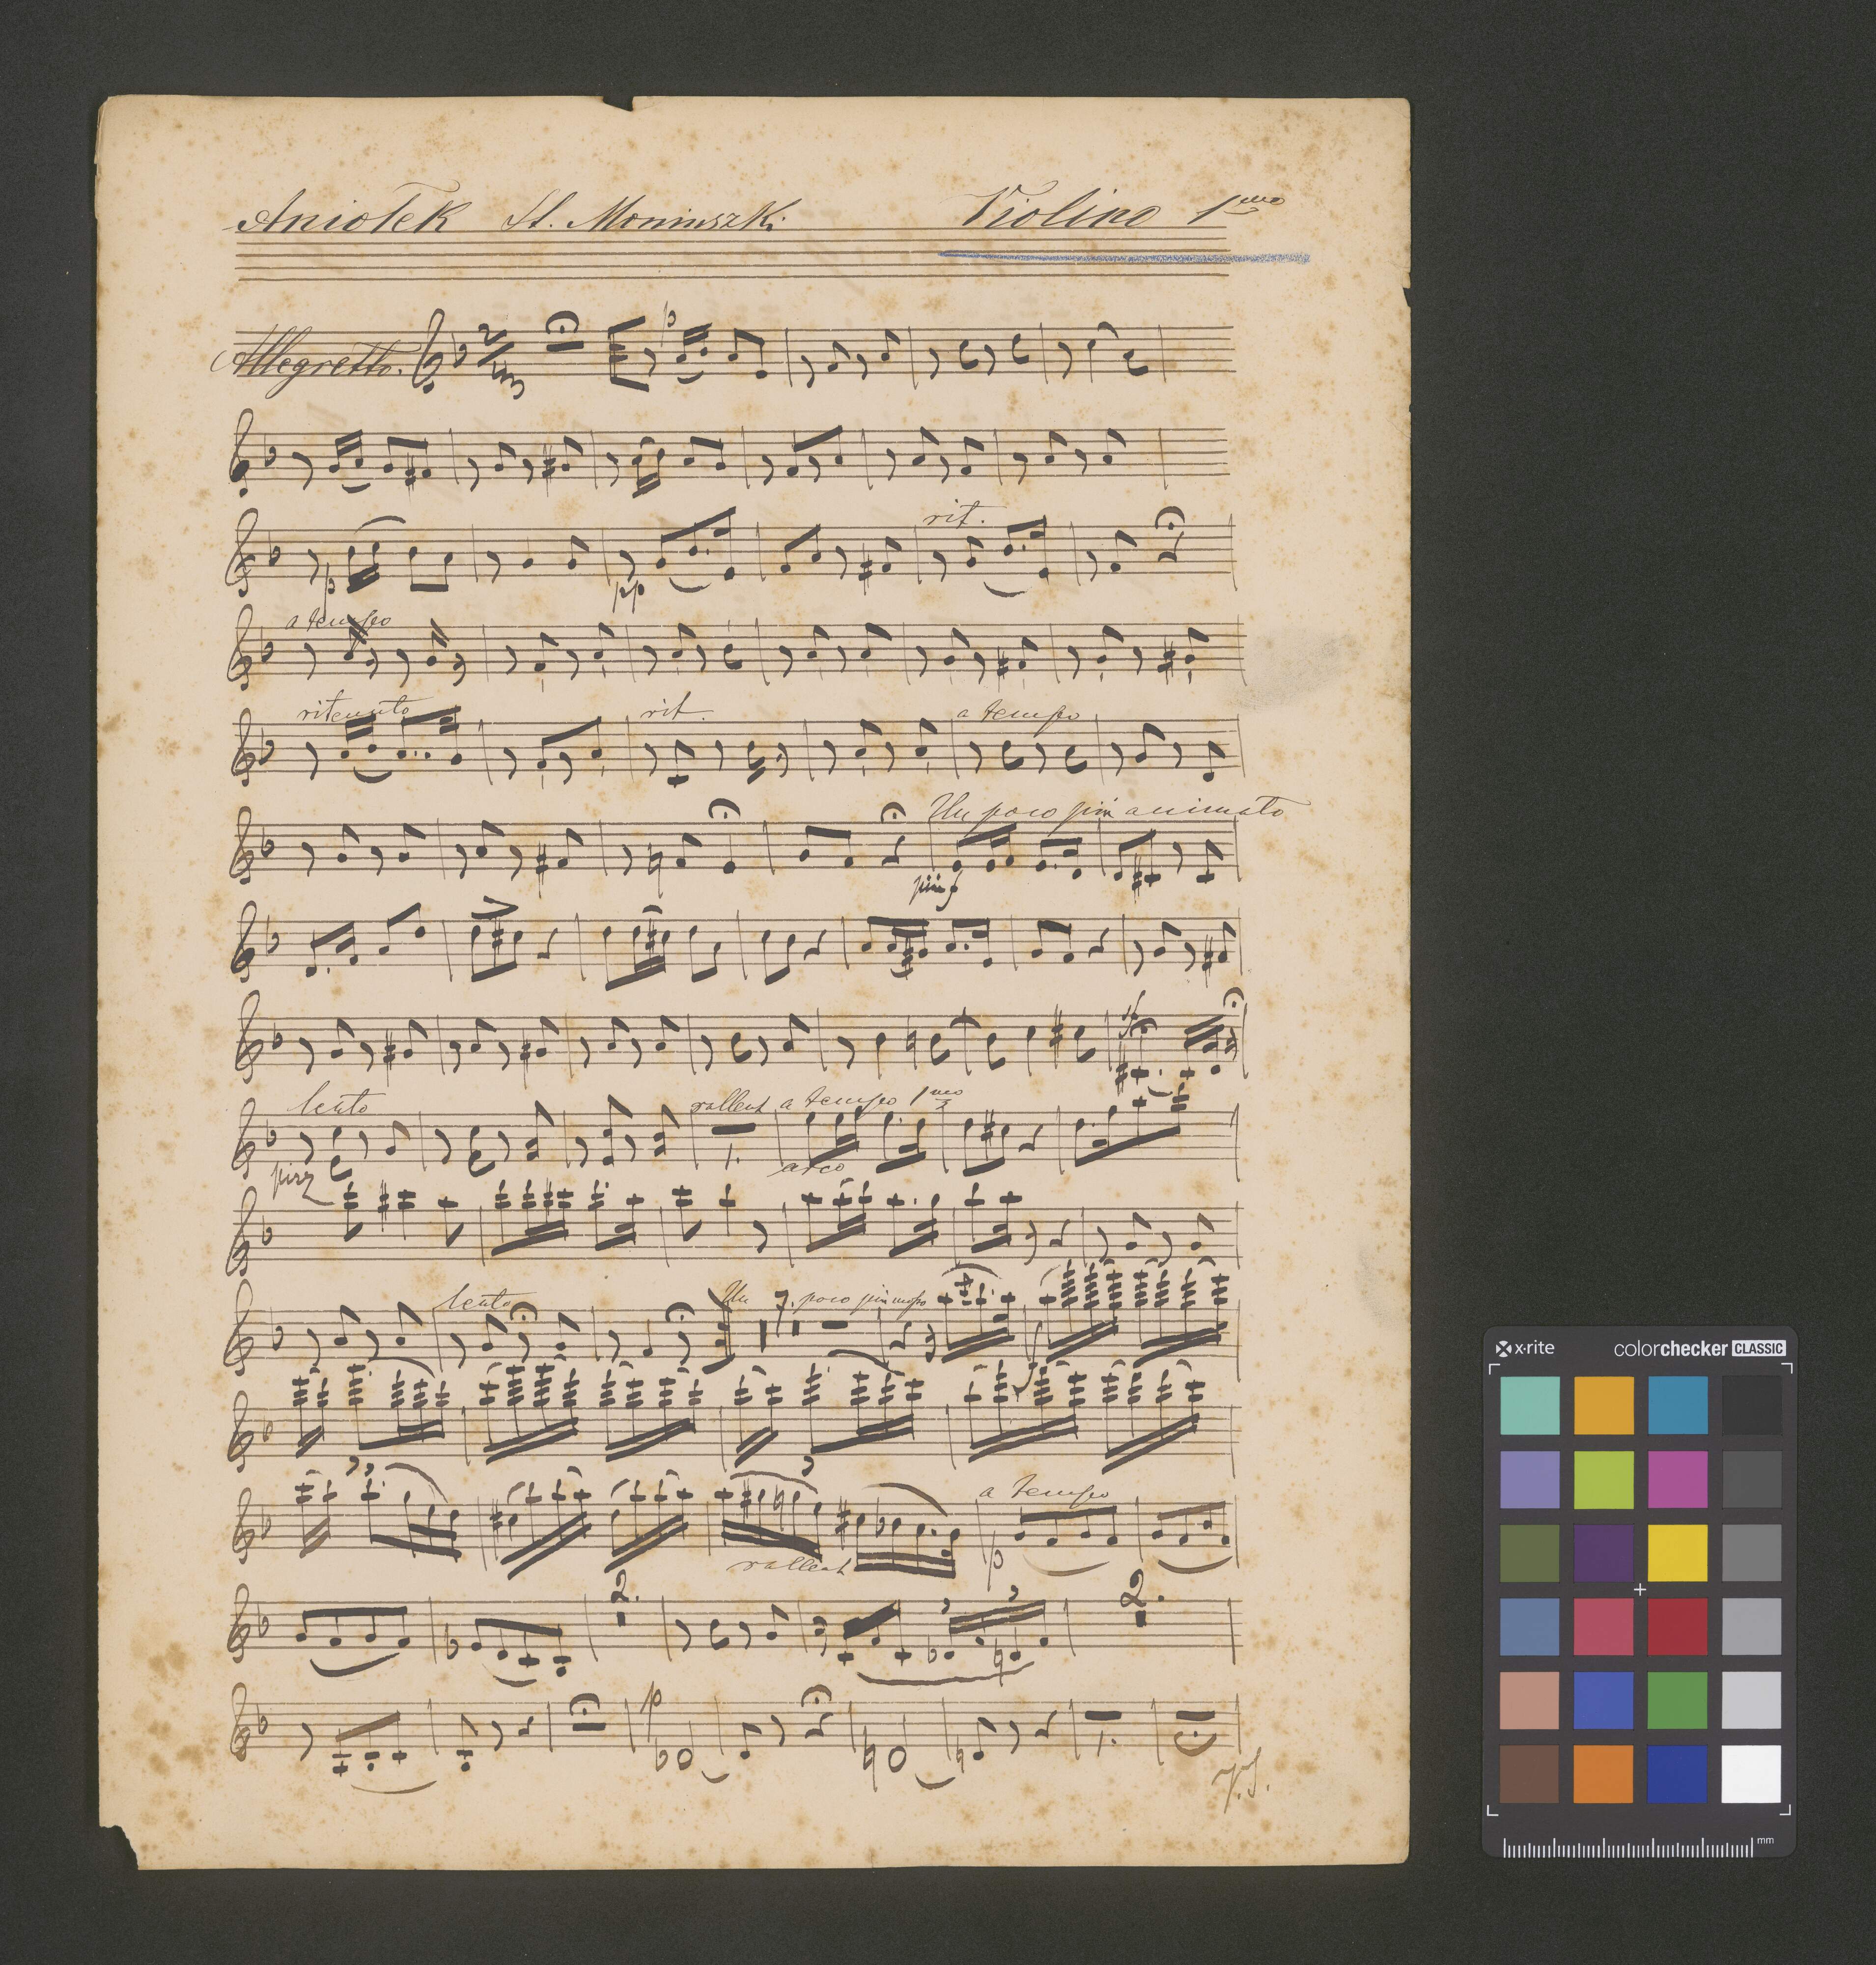 Aniołek St. Moniuszki Violino 1mo
Allegretto.
p
rit.
p pp
a tempo
ritenuto rit. a tempo
Un poco più animato
più f
sf
lento rallent a tempo 1mo
pizz 1. arco
lento Un 7. poco più mosso
a tempo
rallent p
2. 2.
p
1.
V.S.
x-rite colorchecker CLASSIC
mm